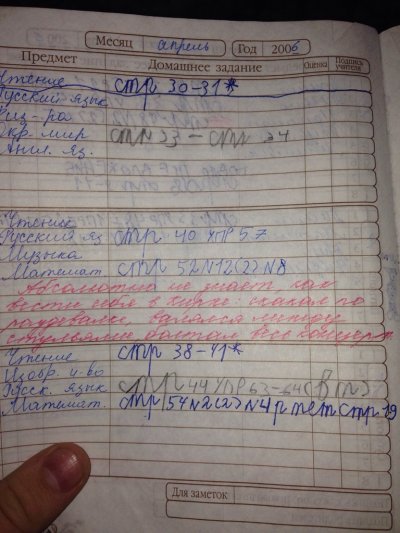 Месяц апрель Год 2006
Предмет Домашнее задание Оценка Подпись учителя
Чтение стр 30-31*
Русский язык
Физ-ра
Окр. мир стр 33 - стр 34
Англ. яз.
Чтение
Русский яз стр 40 упр 57
Музыка
Математ стр 52 N12(2) N8
Абсолютно не знает, как
вести себя в цирке: скакал по
раздевалке, валялся между
стульями болтал весь концерт
Чтение стр 38-41*
Изобр. и-во
Русск. язык стр 44 упр 63-64(П)
Математ. стр 54 N2(2) N4 р тет стр 19
Для заметок